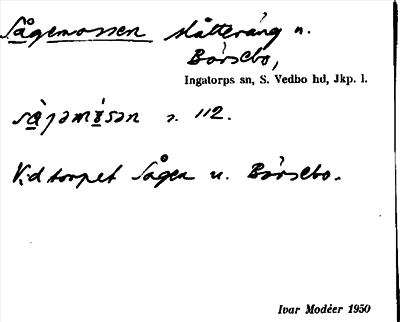 Sågemossen slåtteräng u.
Börsebo,
Ingatorps sn, S. Vedbo hd, Jkp. l.
s. 112.
Vid torpet Sågen u. Börsebo.
Ivar Modéer 1950